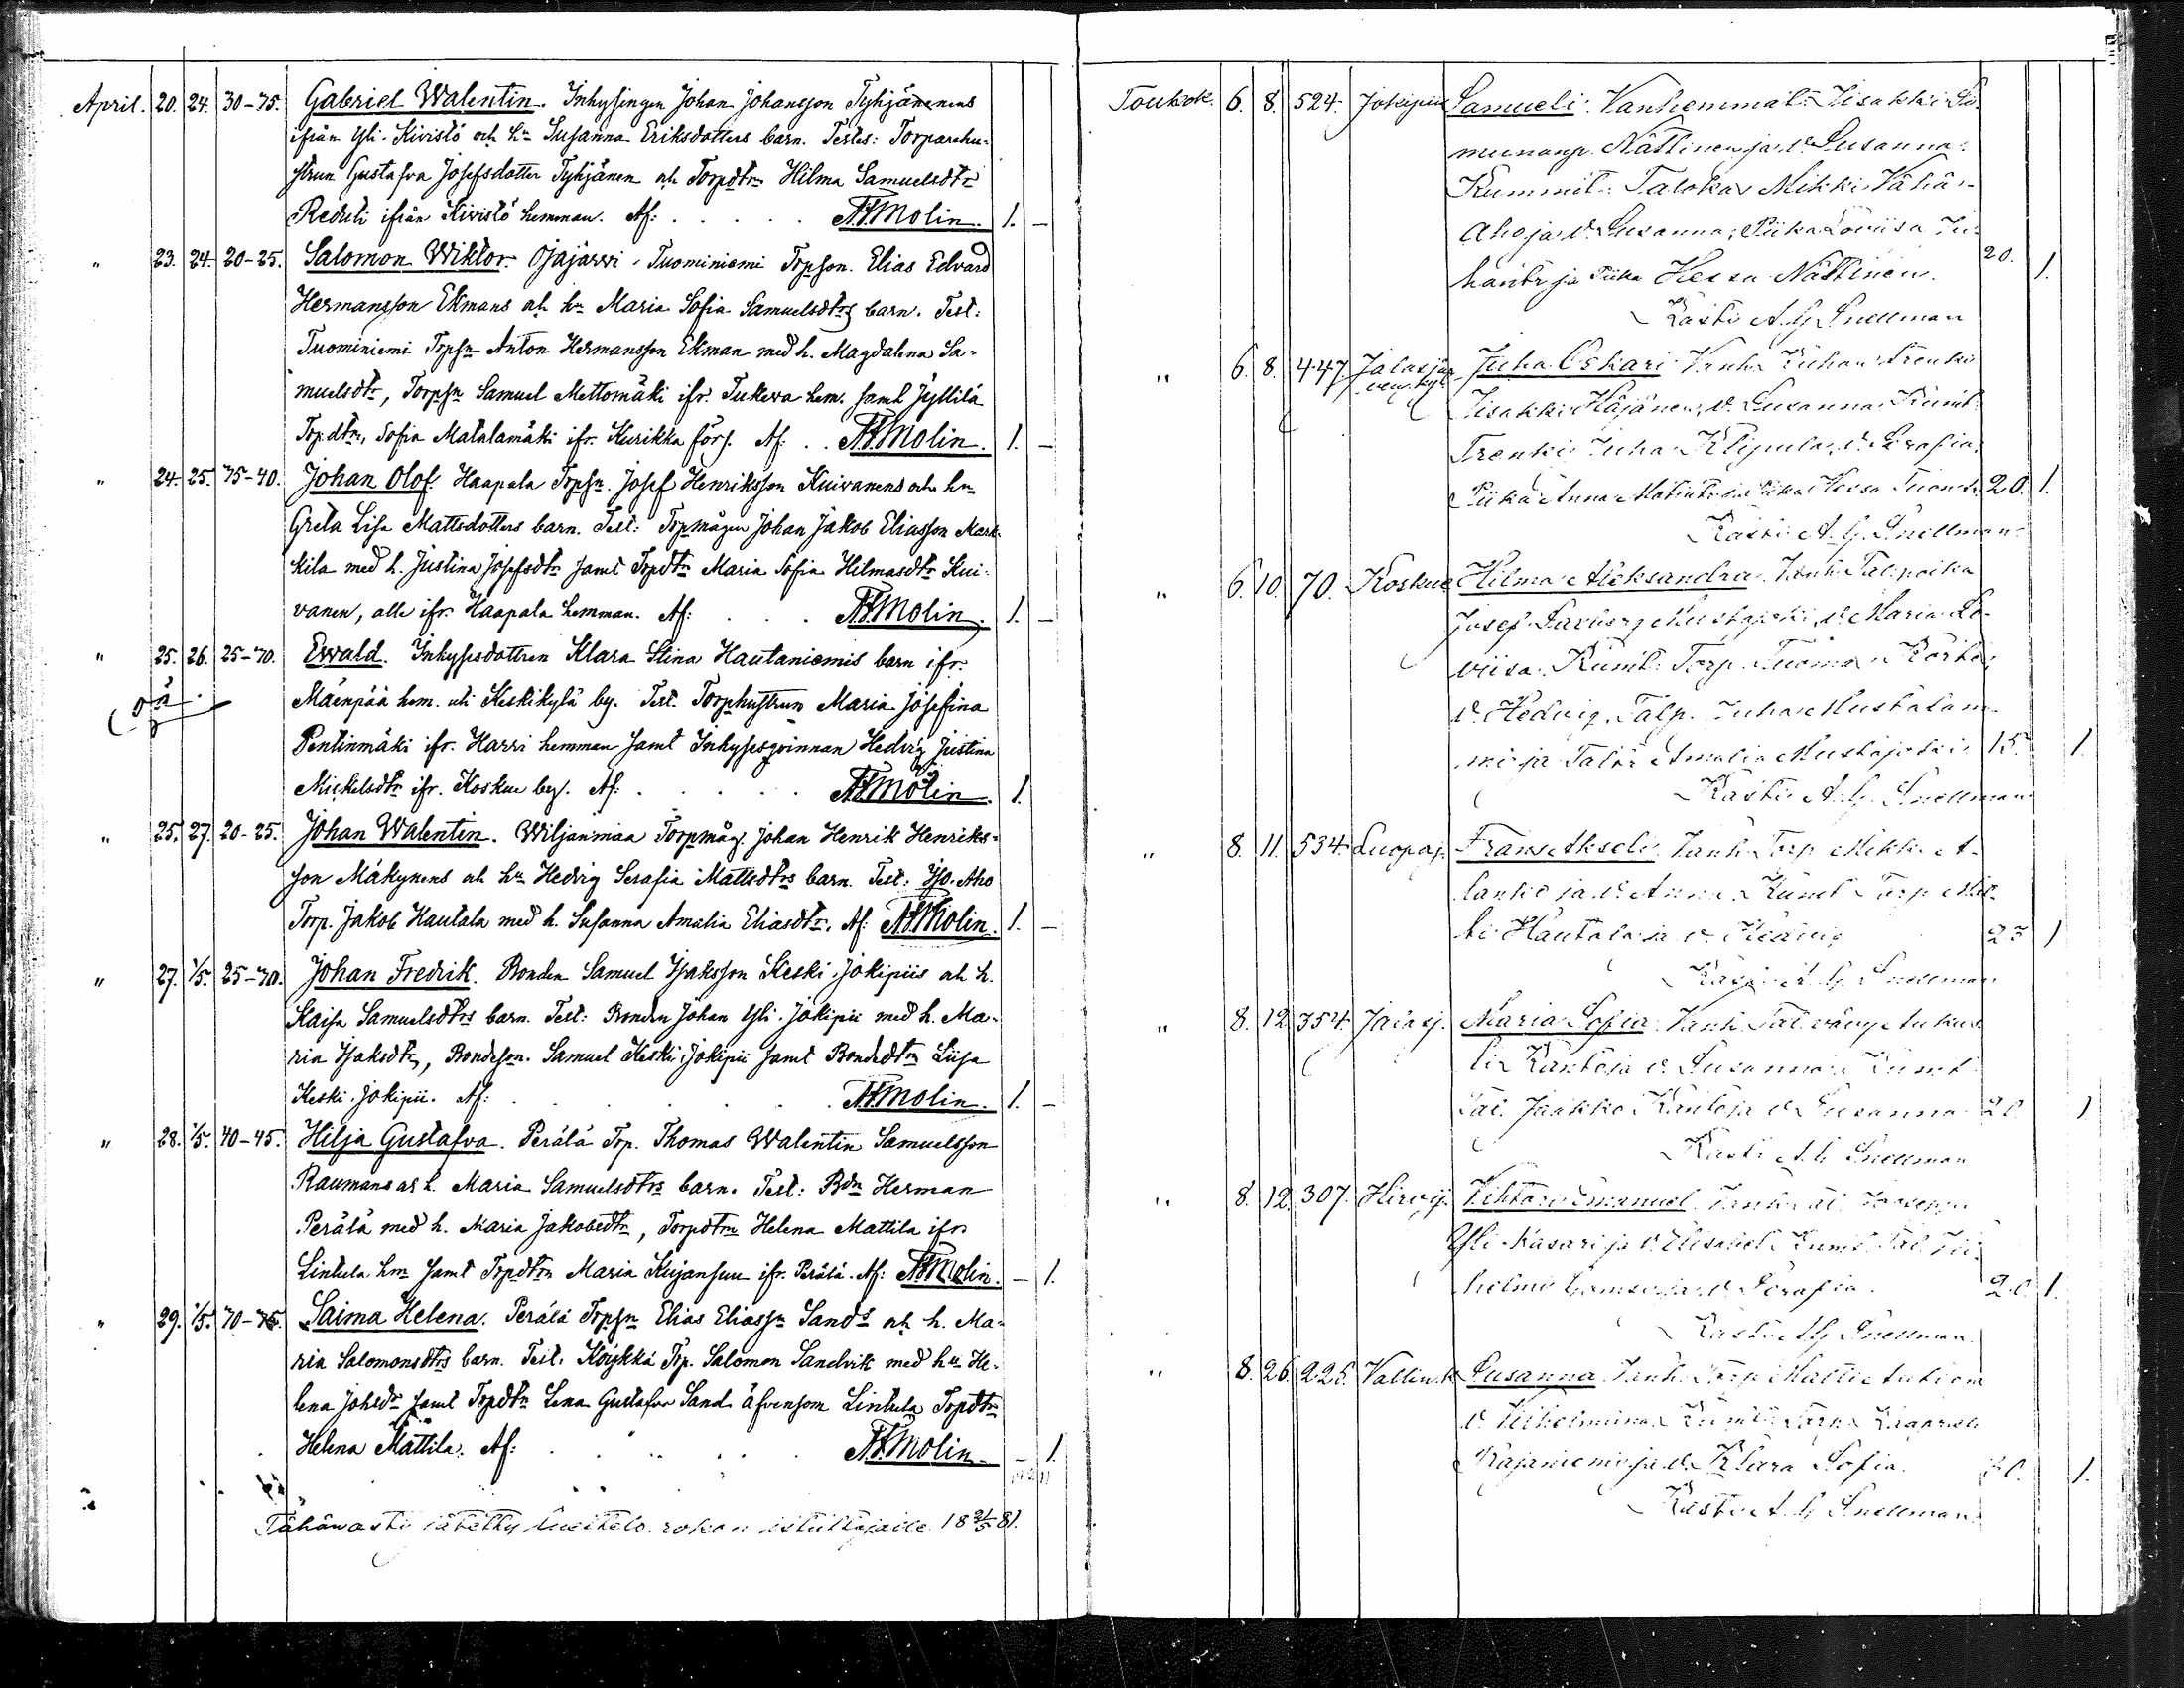 April. 20. 24. 30-75. Gabriel Walentin. Inhysingen Johan Johansson Tyhjänenens
ifrån Yli-Kivistö och hu Susanna Eriksdotters barn. Testes: Torparehu-
strun Gustafva Josefsdotter Tyhjänen och Torpdtrn Hilma Samuelsdtr
Reduli ifrån Kivistö hemman. Af: A.F. Molin. 1. —
" 23. 24. 20-25. Salomon Wiktor. Ojajärvi, Tuominiemi Torpson. Elias Edvard
Hermansson Ekmans och hu Maria Sofia Samuelsdtrs barn. Test:
Tuominiemi Torpsn Anton Hermansson Ekman med h. Magdalena Sa-
muelsdtr, Torpsn Samuel Mettomäki ifr. Tukeva hem. samt Jyllilä
Torpdtrn, Sofia Matalamäki ifr. Kurikka förs. Af: A.F. Molin. 1. —
" 24. 25. 75-40. Johan Olof. Haapala Torpsn. Josef Henriksson Kuivanens och hu
Greta Lisa Mattsdotters barn. Test: Torpmågen Johan Jakob Eliasson Mark-
kila med h. Justina Josefsdtr samt Torpdtrn Maria Sofia Hilmasdtr Kui-
vanen, alle ifr. Haapala hemman. Af: A.F. Molin. 1. —
" 25. 26. 25-70. Ewald. Inhysesdottren Klara Stina Hautaniemis barn ifr.
oä. Mäenpää hem. uti Keskikylä by. Test. Torphustrun Maria Josefina
Pentinmäki ifr. Harri hemman samt Inhysesqvinnan Hedvig Justina
Mickelsdtr ifr. Koskue by. Af: A.F. Molin. 1.
" 25. 27. 20-25. Johan Walentin. Wiljanmaa Torpmåg. Johan Henrik Henriks-
son Mäkynens och hu Hedvig Serafia Mattsdtrs barn. Test: Iso-Aho
Torp. Jakob Hautala med h. Susanna Amalia Eliasdtr. Af: A.F. Molin. 1. —
" 27. 1/5. 25-70. Johan Fredrik. Bonden Samuel Isaksson Keski-Jokipiis och h.
Kaisa Samuelsdtrs barn. Test: Bonden Johan Yli-Jokipii med h. Ma-
ria Isaksdtr, Bondeson. Samuel Keski-Jokipii samt Bondedtrn Liisa
Keski-Jokipii. Af: A.F. Molin. 1. —
" 28. 1/5. 40-45. Hilja Gustafva. Perälä Trp. Thomas Walentin Samuelsson
Raumans och h. Maria Samuelsdtrs barn. Test: Bdn Herman
Perälä med h. Maria Jakobsdtr, Torpdtrn Helena Mattila ifr.
Lintula hm samt Torpdtrn Maria Kujansuu ifr. Perälä. Af: A.F. Molin. — 1.
" 29. 1/5. 70-75. Saima Helena. Perälä Torpsn Elias Eliassn Sands och h. Ma-
ria Salomonsdtrs barn. Test. Köykkä Trp. Salomon Sandvik med hu He-
lena Johsdtr samt Torpdtrn Lena Gustafva Sand äfvensom Lintula Torpdtrn
Helena Mattila. Af: A.F. Molin — 1.
Tähänasti jätetty luettelo rokon istuttajalle 18 31/5 81.
Toukok. 6. 8. 524. Jokipii Samueli. Vanhemmat: Iisakki Sa-
muunp. Nättinen ja v. Susanna.
Kummit: Talokas Mikki Vähä-
Aho ja v. Susanna; Piika Loviisa Ju-
hantr ja Piika Hessa Nättinen. 20. 1.
Kasti A. G. Snellman
" 6. 8. 447. Jalasjärven kyl. Juha Oskari. Vanh. Renki
Iisakki Häjänen, v. Susanna. Kumit:
Trenki Juha v. Serafia,
Piika Anna Matintr ja Piika Hessa 20. 1.
Kasti A. G. Snellman
" 6. 10. 70. Koskue Hilma Aleksandra. Vanh. Tal. poika
Josef Mustajoki, v. Maria Lo-
viisa. Kumit: Torp. Tuomas
v. Hedvig, Talp. Juha Mustalam-
mi ja Taltr Amalia Mustajoki. 15. 1.
Kasti A. G. Snellman
" 8. 11. 534. Luopaj. Frans Akseli. Vanh. Torp. Mikki A-
lanko ja v. Anna. Kumit Torp. Mat-
ti Hautala ja v. Hedvig 23 1
Kasti A. G. Snellman
" 8. 12. 354. Jalasj. Maria Sofia. Vanh. Tal. vävy
Kantoja v. Susanna. Kumit
Tal. Jaakko Kantoja v. Susanna 20 1
Kasti A. G. Snellman
" 8. 12. 307. Hirvij. Vihtori Emanuel. Vanh.
Yli-Kasari ja v. Elisabet. Kumit. Tal. Vil-
helmi ja v. Serafia. 20. 1.
Kasti A. G. Snellman
" 8. 26. 225. Susanna. Vanh. Torp. Matti
v. Vilhelmiina. Kumit: Torp. Kaaprieli
Rajaniemi ja v. Klaara Sofia. 30. 1.
Kasti A. G. Snellman